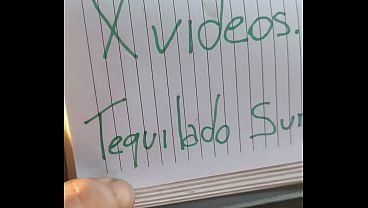 X videos.
Tequilado Sur